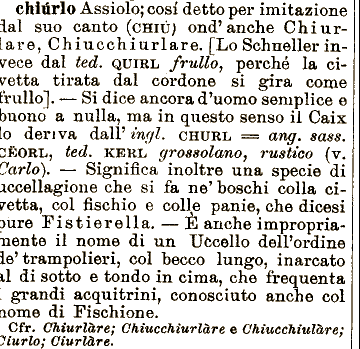 chiúrlo Assiolo; cosí detto per imitazione
dal suo canto (CHIÚ) ond' anche Chiur-
lare, Chiucchiurlare. [Lo Schneller in-
vece dal ted. QUIRL frullo, perché la ci-
vetta tirata dal cordone si gira come
frullo]. — Si dice ancora d'uomo semplice e
buono a nulla, ma in questo senso il Caix
lo deriva dall' ingl. CHURL = ang. sass.
CËORL, ted. KERL grossolano, rustico (v.
Carlo). — Significa inoltre una specie di
uccellagione che si fa ne' boschi colla ci-
vetta, col fischio e colle panie, che dicesi
pure Fistierella. — È anche impropria-
mente il nome di un Uccello dell'ordine
de' trampolieri, col becco lungo, inarcato
al di sotto e tondo in cima, che frequenta
i grandi acquitrini, conosciuto anche col
nome di Fischione.
Cfr. Chiurlàre; Chiucchiurlàre e Chiucchiulàre;
Ciurlo; Ciurlàre.